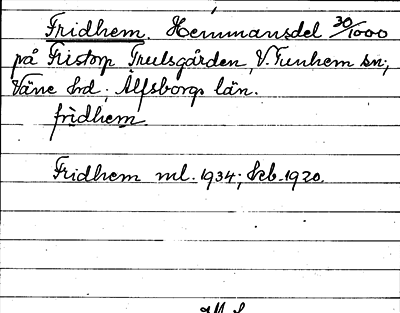 Fridhem. Hemmansdel 30/1000
på Fristorp Trulsgården, V. Tunhem sn;
Väne hd; Älfsborgs län.
fridhem.
Fridhem ml. 1934; keb. 1920.